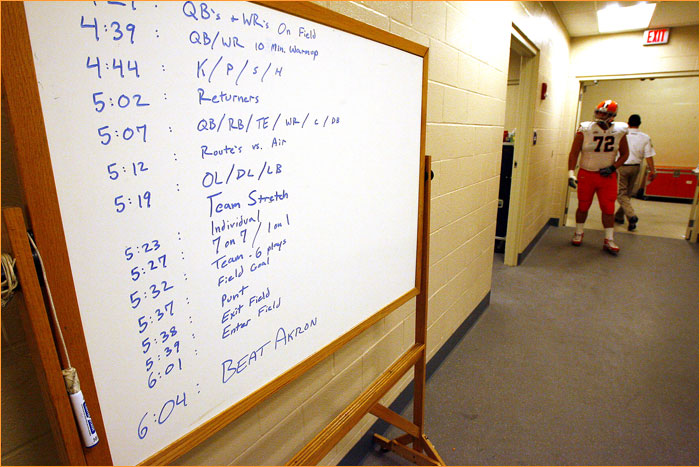 QB's + WR's On Field
4:39 : QB/WR 10 Min. Warmup
4:44 : K/P/S/H
5:02 : Returners
5:07 : QB/RB/TE/WR/C/DB
Route's vs. Air
5:12 : OL/DL/LB
5:19 : Team Stretch
5:23 : Individual
5:27 : 7 on 7 / 1 on 1
5:32 : Team - 6 plays
5:37 : Field Goal
5:38 : Punt
5:39 : Exit Field
6:01 : Enter Field
6:04 : BEAT AKRON
EXIT
72